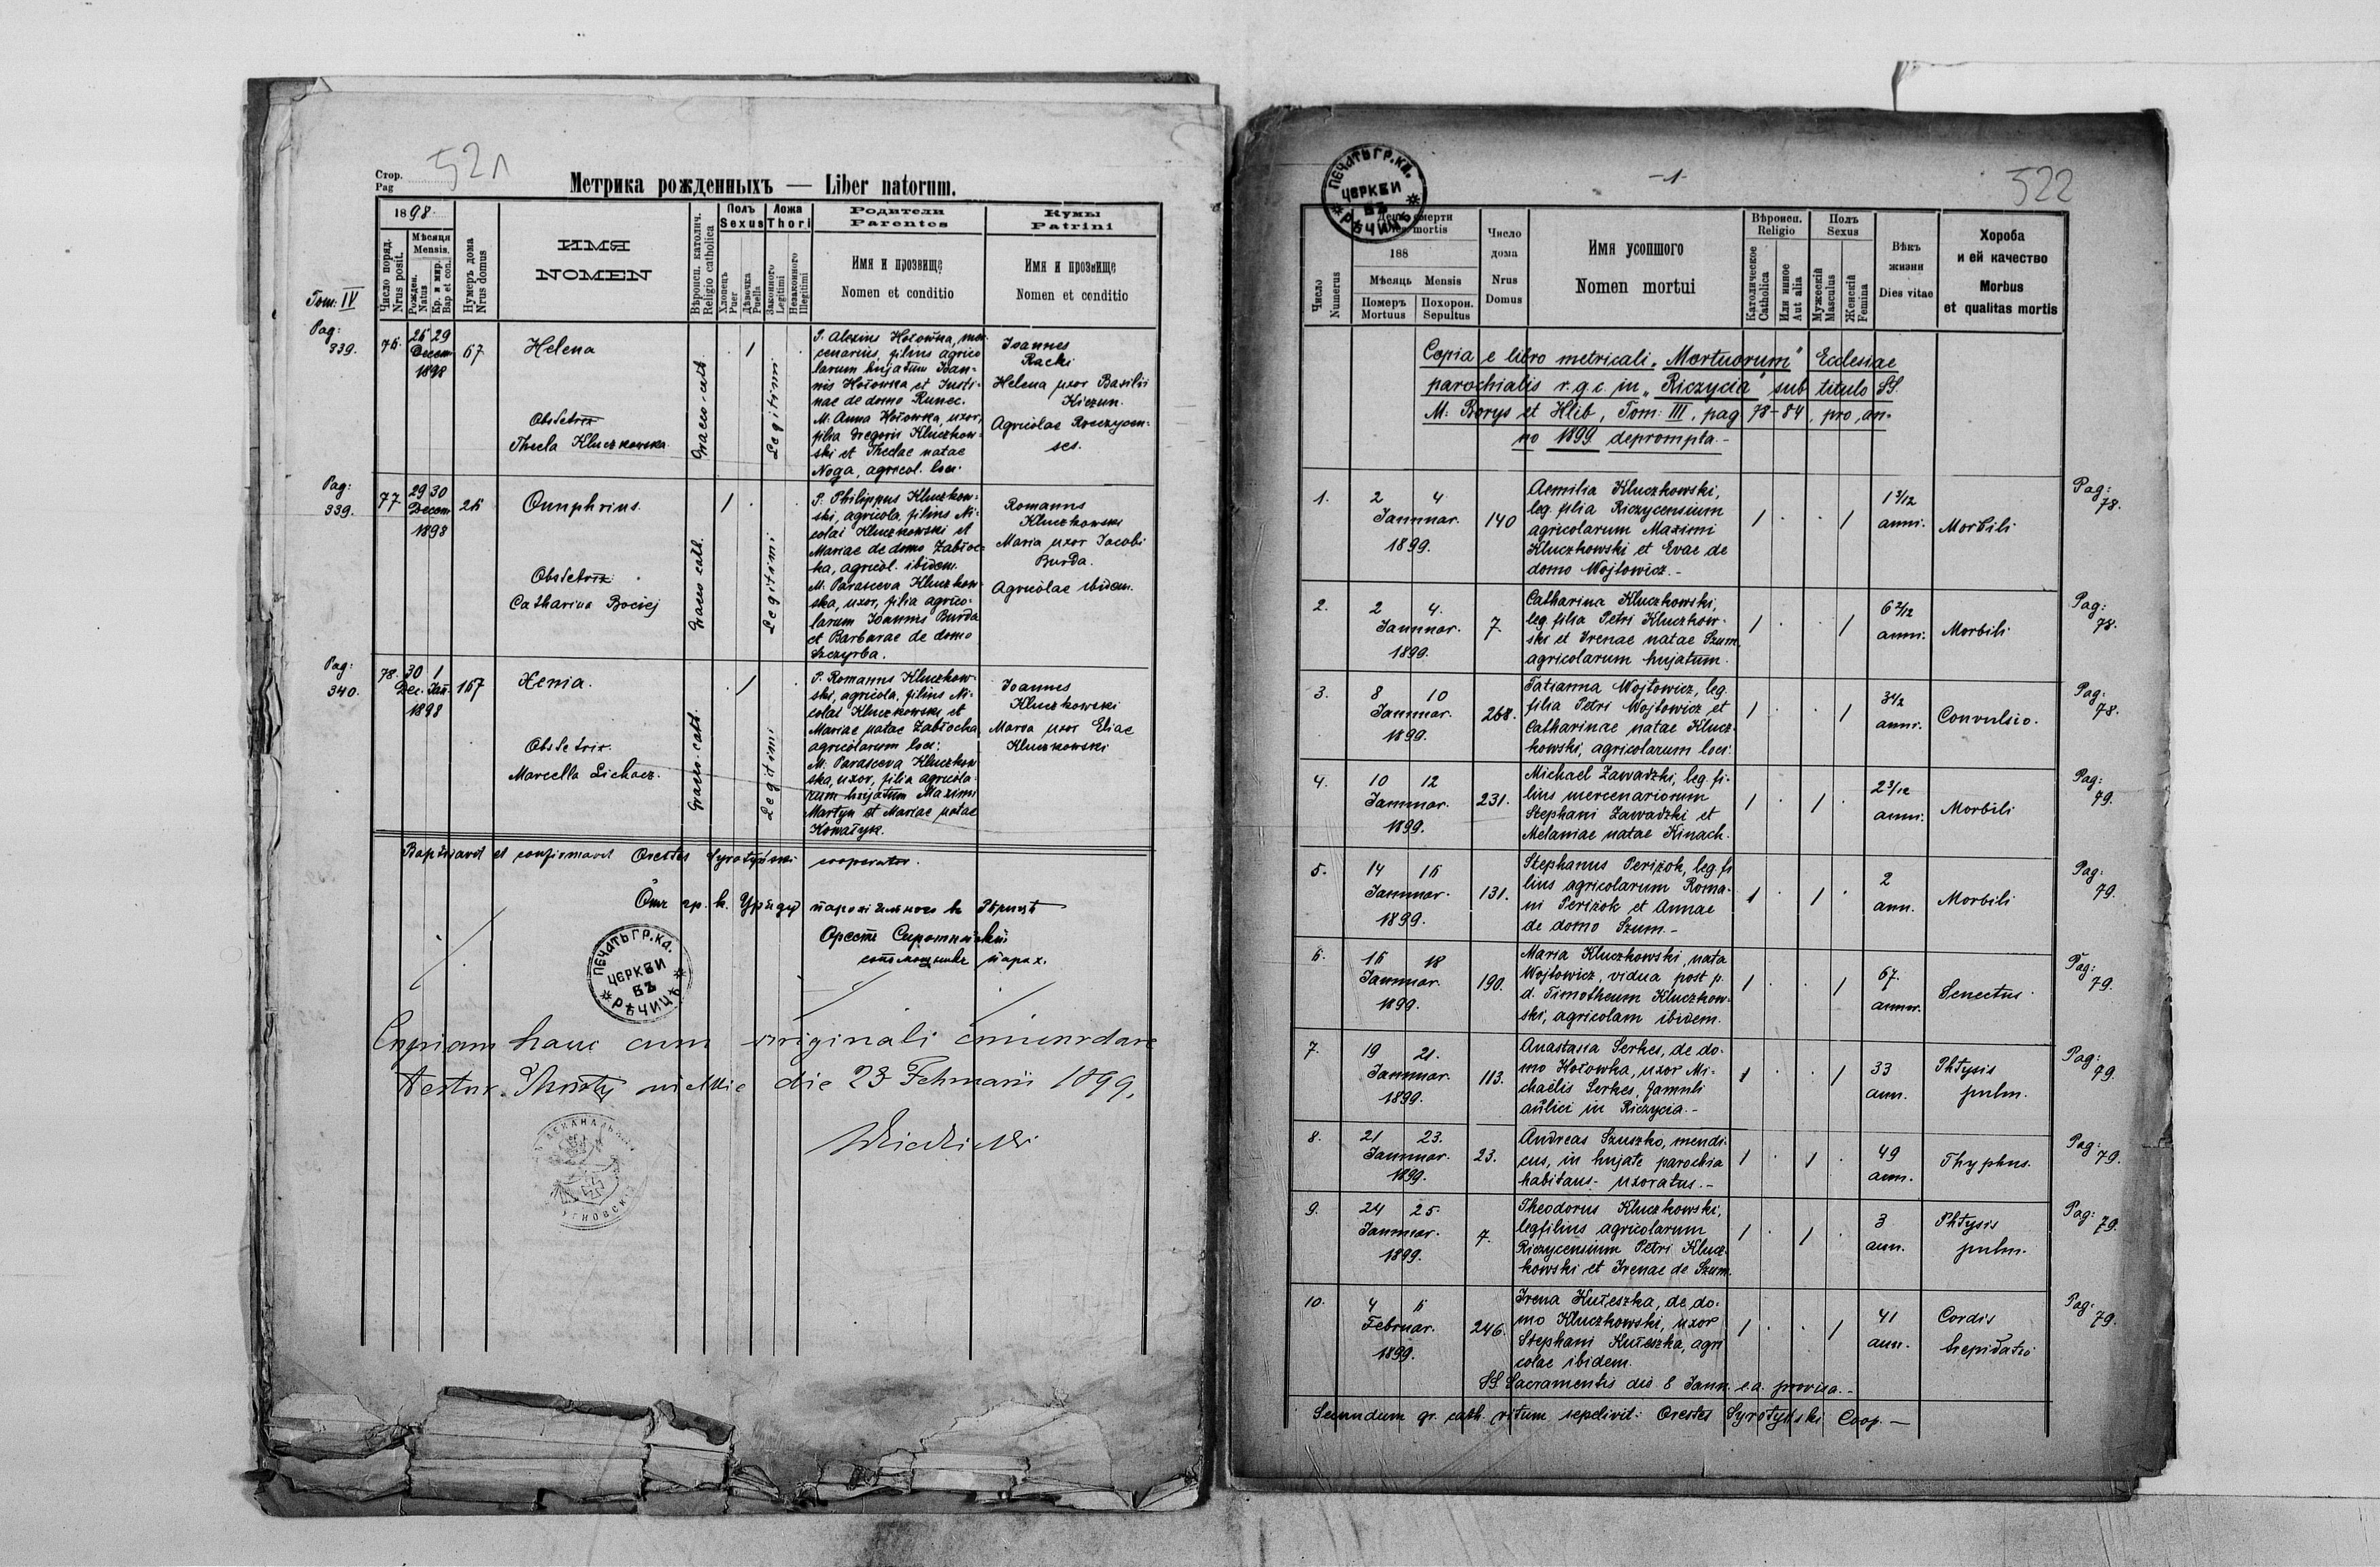 52л
Стор.
Pag
Метрика рожденныхъ — Liber natorum.
1898.
Число поряд.
Nrus posit.
Мѣсяця
Mensis.
Рожден.
Natus
Кр. и мир.
Bap et con.
Нумеръ дома
Nrus domus
ИМЯ
NOMEN
Вѣроисп. католич.
Religio catholica
Полъ
Sexus
Хлопецъ
Puer
Дѣвочка
Puella
Ложа
Thori
Законного
Legitimi
Незаконного
Illegitimi
Родители
Parentes
Имя и прозвище
Nomen et conditio
Кумы
Patrini
Имя и прозвище
Nomen et conditio
Tom: IV
Pag:
339.
76.
26 29
Decem
1898
67
Helena
Obstetrix
Thecla Kluczkowska
Graeco-cath.
1
Legitimi
P. Alexius Hołowka, mer-
cenarius, filius agrico
larum hujatum Ioan-
nis Hołowka et Justi-
nae de domo Runec.
M. Anna Hołowka, uxor,
filia Gregorii Kluczkow-
ski et Theclae natae
Noga, agricol. loci.
Ioannes
Racki
Helena uxor Basilii
Kiczun.
Agricolae Rreczycen-
ses.
Pag:
339.
77
29 30
Decem
1898
26
Onuphrius.
Obstetrix
Catharina Bociej
Graeco cath.
1
Legitimi
P. Philippus Kluczkow-
ski, agricola, filius Ni-
colai Kluczkowski et
Mariae de domo Zabłoc-
ka, agricol. ibidem.
M. Parasceva Kluczkow-
ska, uxor, filia agrico-
larum Ioannis Burda
et Barbarae de domo
Szczyrba.
Romanus
Kluczkowski
Maria uxor Iacobi
Burda.
Agricolae ibidem.
Pag:
340.
78.
30 1
Dec. Jan.
1898
167
Xenia.
Obstetrix.
Marcella Lichacz.
Graeco-cath.
1
Legitimi
P. Romanus Kluczkow-
ski, agricola, filius Ni-
colai Kluczkowski et
Mariae natae Zabłocka
agricolarum loci.
M. Parasceva Kluczkow
ska, uxor, filia agricola-
rum hujatum Maximi
Martyn et Mariae natae
Kowałyk.
Ioannes
Kluczkowski
Maria uxor Eliae
Kluczkowski
Baptisavit et confirmavit Orestes Syrotyński cooperator.
Отъ гр. к. Уряду парохіяльного въ Рѣчици
Орестъ Сиротинскій
сотр. парох.
ПЕЧАТЬ ГР. КА.
ЦЕРКВИ
ВЪ
РѢЧИЦѢ
Copiam hanc cum originali concordare
testor. die 23 Februarii 1899.
-1-
522
ПЕЧАТЬ ГР. КА.
ЦЕРКВИ
ВЪ
РѢЧИЦѢ
Число
Numerus
День смерти
Dies mortis
188
Мѣсяць Mensis
Померъ
Mortuus
Похорон.
Sepultus
Число
дома
Nrus
Domus
Имя усопшого
Nomen mortui
Вѣроисп.
Religio
Католическое
Catholica
Или инное
Aut alia
Полъ
Sexus
Мужескій
Masculus
Женскій
Femina
Вѣкъ
жизни
Dies vitae
Хороба
и ей качество
Morbus
et qualitas mortis
Copia e libro metricali „Mortuorum" Eclesiae
parochialis r. g. c. in „Riczycia" sub titulo SS.
M: Borys et Hlib, Tom: III, pag 78-84, pro an-
no 1899 deprompta.-
1.
2 4
Iannuar.
1899.
140
Aemilia Kluczkowski,
leg. filia Riczycensium
agricolarum Maximi
Kluczkowski et Evae de
domo Wojtowicz.-
1 . . 1
1 3/12
anni.
Morbili
Pag:
78.
2.
2 4.
Iannuar.
1899.
7.
Catharina Kluczkowski,
leg. filia Petri Kluczkow-
ski et Irenae natae Szum,
agricolarum hujatum.
1 . . 1
6 2/12
anni.
Morbili
Pag:
78.
3.
8 10
Iannuar.
1899.
268.
Tatianna Wojtowicz, leg.
filia Petri Wojtowicz et
Catharinae natae Klucz-
kowski, agricolarum loci.
1 . . 1
anni.
Convulsio.
Pag:
78.
4.
10 12
Iannuar.
1899.
231.
Michael Zawadzki, leg. fi-
lius mercenariorum
Stephani Zawadzki et
Melaniae natae Kinach.
1 . 1 .
2 3/12
anni.
Morbili
Pag:
79.
5.
14 16
Iannuar.
1899.
131.
Stephanus Periżok, leg. fi
lius agricolarum Roma-
ni Periżok et Annae
de domo Szum.-
1 . 1 .
2
ann.
Morbili
Pag:
79.
6.
16 18
Iannuar.
1899.
190.
Maria Kluczkowski, nata
Wojtowicz, vidua post p.
d. Timotheum Kluczkow-
ski, agricolam ibidem.
1 . . 1
67.
annor.
Senectus.
Pag:
79.
7.
19 21.
Iannuar.
1899.
113.
Anastasia Serkes, de do-
mo Hołowka, uxor Mi-
chaëlis Serkes, famuli
aulici in Riczycia.-
1 . . 1
33
ann.
Phtysis
pulm.
Pag:
79.
8.
21 23.
Iannuar.
1899.
23.
Andreas Szuszko, mendi-
cus, in hujate parochia
habitans- uxoratus.-
1 . 1 .
49
ann.
Thyphus.
Pag:
79.
9.
24 25.
Iannuar.
1899.
7.
Theodorus Kluczkowski,
leg filius agricolarum
Riczycensium Petri Klucz-
kowski et Irenae de Szum.
1 . 1 .
3
ann.
Phtysis
pulm.
Pag:
79.
10.
4 6
Februar.
1899.
246.
Irena Kułeszka, de do-
mo Kluczkowski, uxor
Stephani Kułeszka, agri
colae ibidem.
1 . . 1
41
ann.
Cordis
trepidatio
Pag:
79.
SS. Sacramentis die 8 Iann. e.a. provisa.-
Secundum gr. cath. ritum sepelivit: Orestes Syrotyński Coop.-